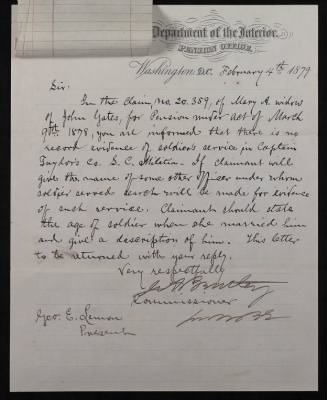 Department of the Interior,
PENSION OFFICE,
Washington, D.C. February 4th 1879
Sir:
In the Claim, No. 20.359, of Mary A. widow
of John Yates, for Pension under Act of March
9th 1878, you are informed that there is no
record evidence of soldier's service in Captain
Taylor's Co. S.C. Militia. If claimant will
give the name of some other officer under whom
soldier served search will be made for evidence
of such service. Claimant should state
the age of soldier when she married him
and give a description of him. This letter
to be returned with your reply.
Very respectfully
Commissioner
Geo. E. Lemon
Present